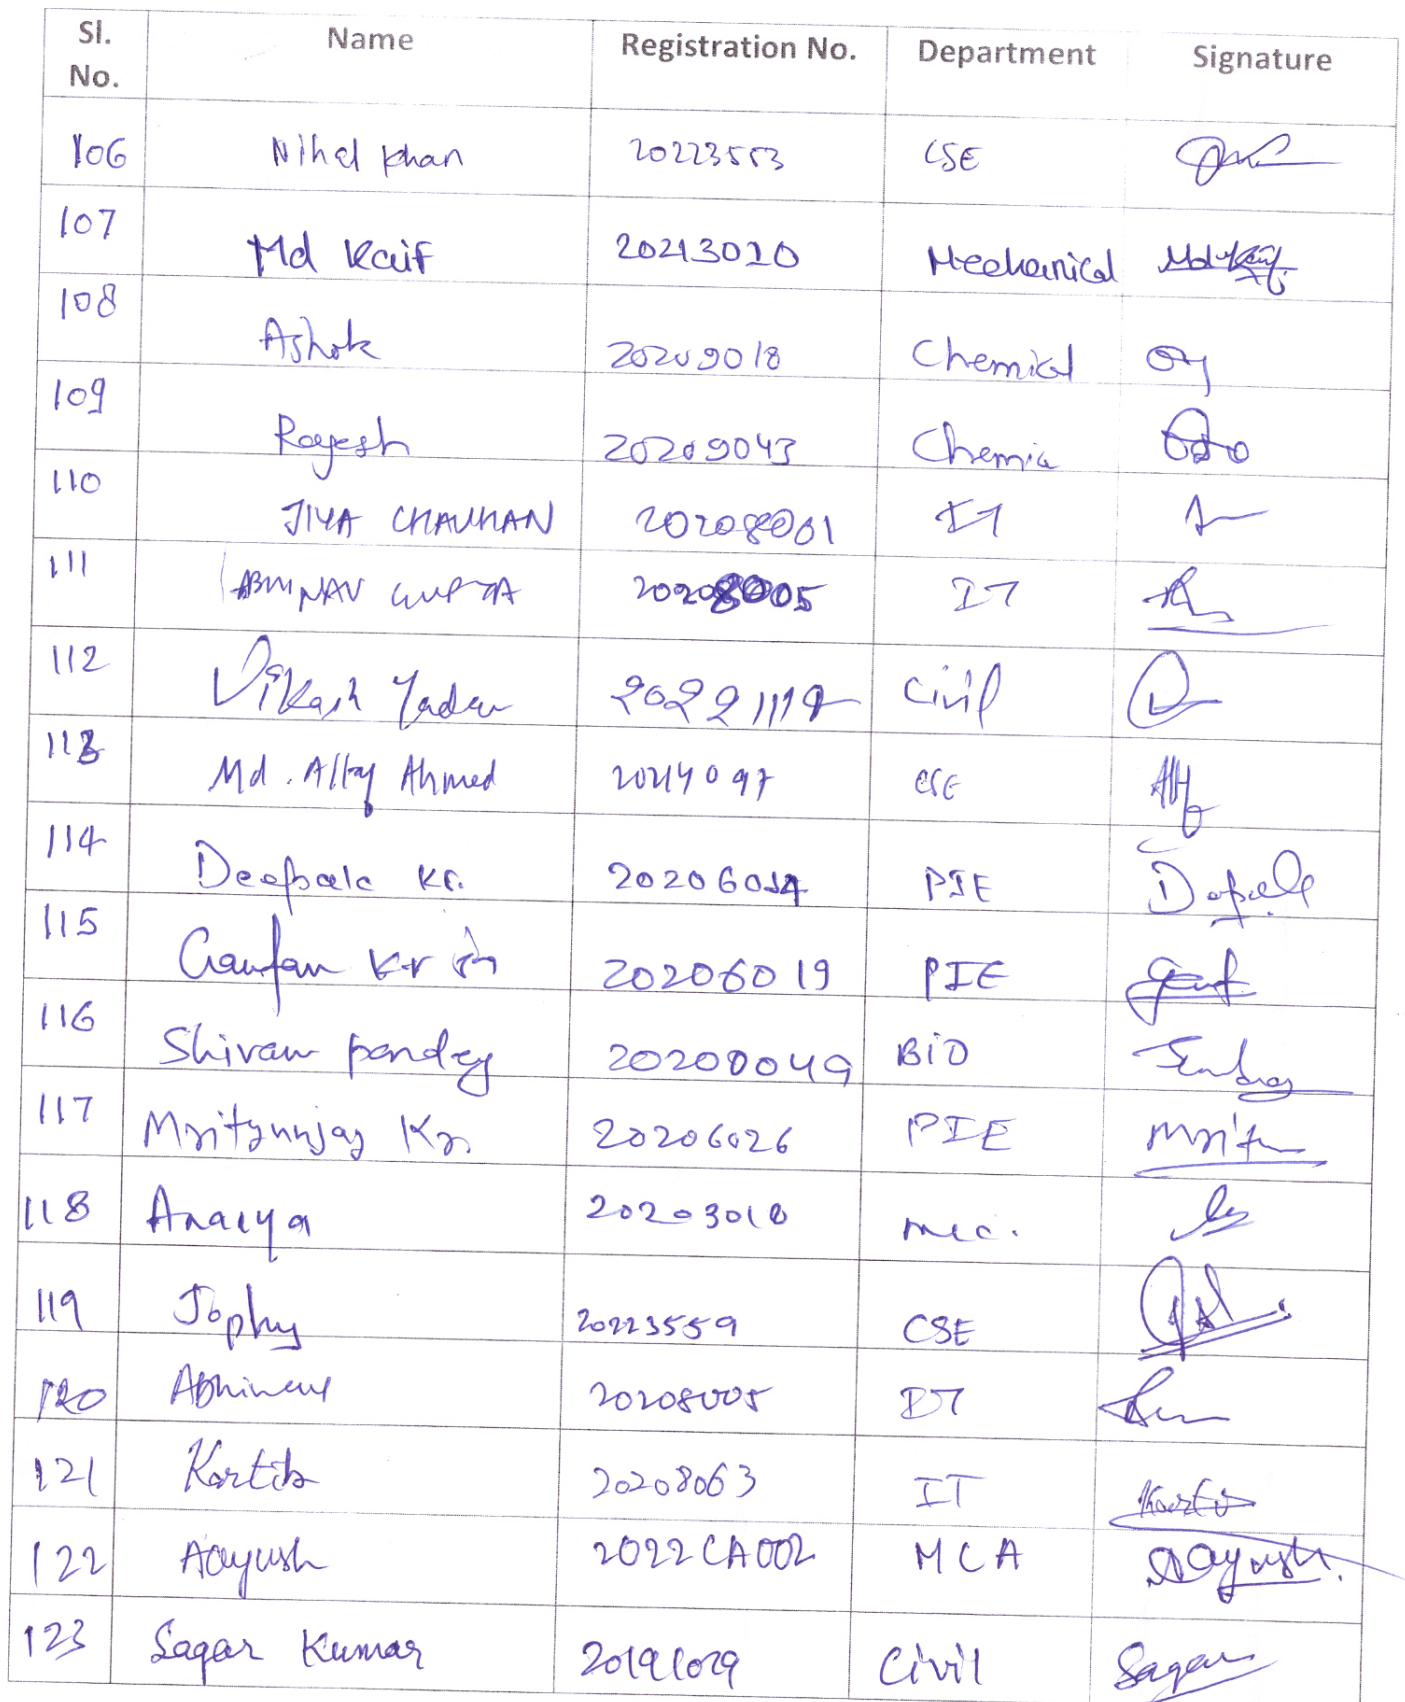 Sl. No. Name Registration No. Department Signature
106 Nihal Khan 20223553 CSE
107 Md Kaif 20213020 Mechanical Md Kaif
108 Ashok 20209018 Chemical
109 Rajesh 20209043 Chemic
110 JIYA CHAUHAN 20208001 IT
111 ABHINAV GUPTA 20208005 IT
112 Vikash Yadav 20221112 Civil
113 Md. Altaf Ahmed 20214097 CSE
114 Deepak Kr. 20206014 PIE Deepak
115 Kr 20206019 PIE
116 Shivam pandey 20200049 BiO
117 Mrityunjay Kr. 20206026 PIE Mritu
118 20203010 mec.
119 Jophy 20223559 CSE
120 Abhinav 20208005 IT
121 Kartik 20208063 IT
122 Aayush 2022CA002 MCA Aayush.
123 Sagar Kumar 20191029 Civil Sagar